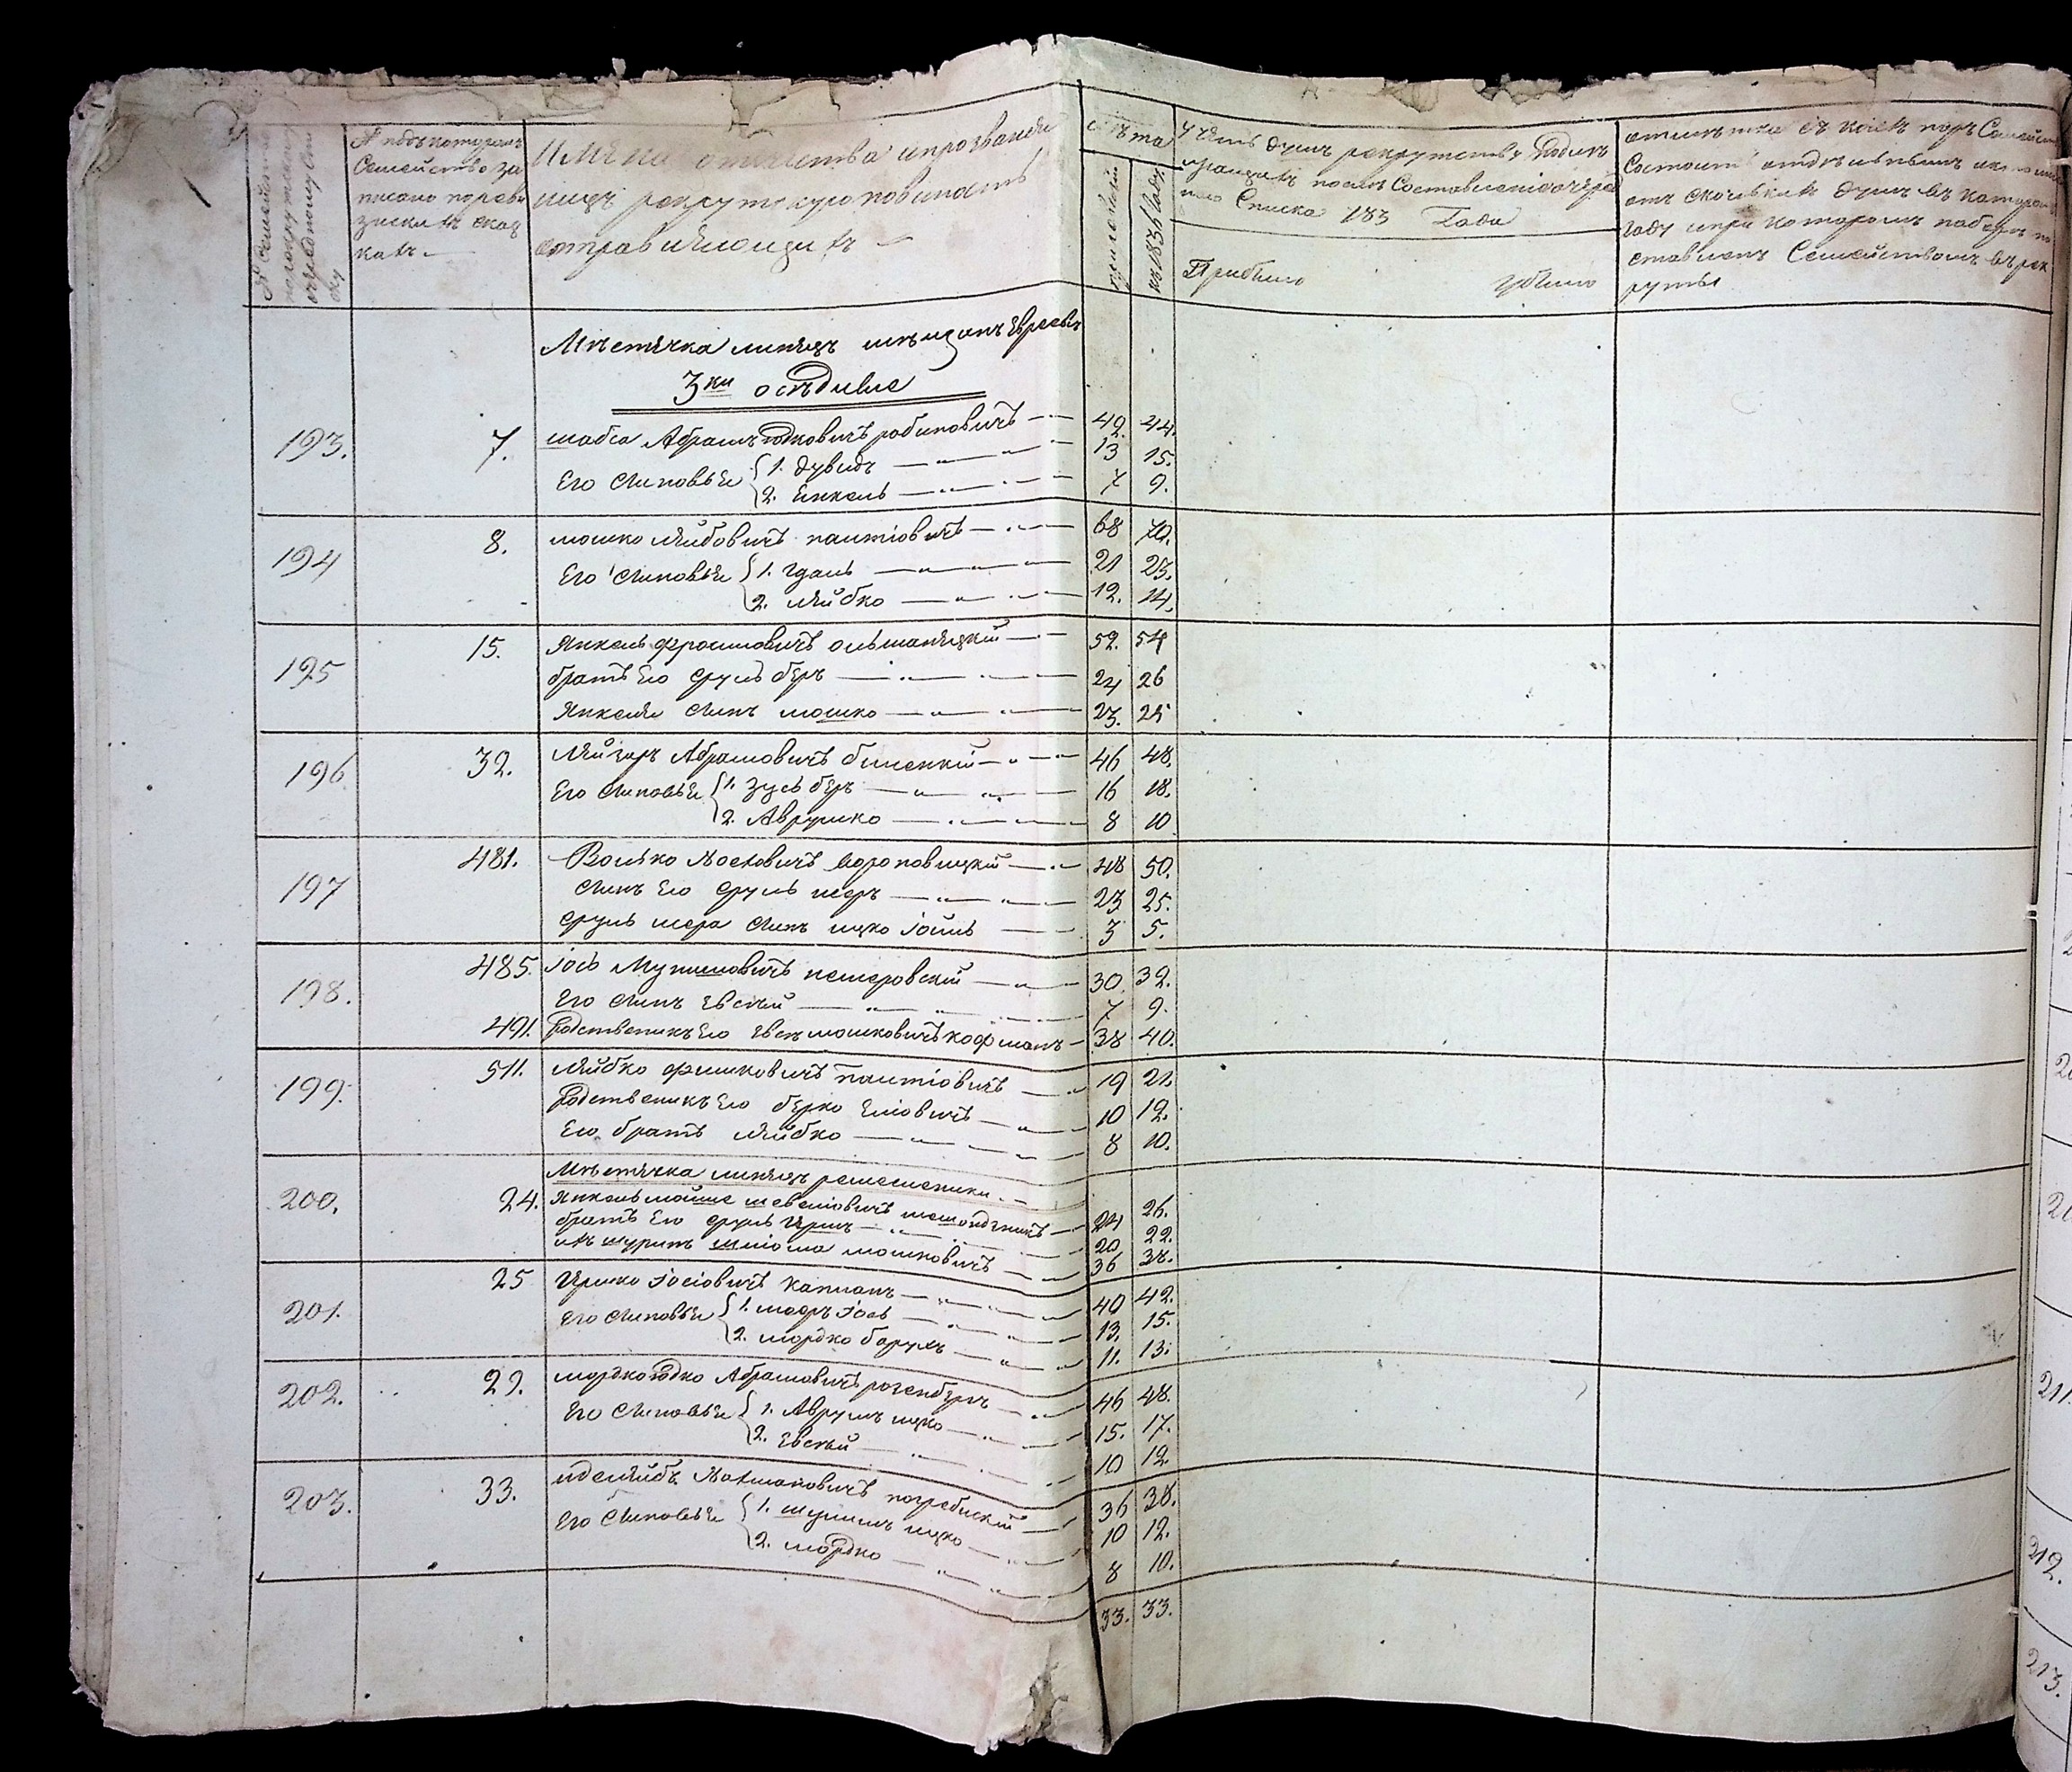 № Семейства по рекрутскому очередному списку
№ подъ которымъ Семейство записано по ревизскимъ сказкамъ
Имяна отечества и прозвания
лицъ рекрутскую повиность
отправляющихъ
Лѣта
по ревизской
въ 183 году
Учетъ душъ рекрутству подлежащихъ после Составленія очереднаго Списка 183 Года
Прибыло
убыло
отметка съ коихъ поръ Семейство
Состоитъ отдельнымъ
отъ сколькихъ душъ въ которомъ
году и при которомъ наборе по
ставленъ Семействомъ въ рек
руты
Мѣстечка липецъ мѣщанъ Евреевъ
3хъ оседлые
193. 7. шабса Абрамъ Юдковичъ рабиновичъ 42. 44.
Его Сыновья 1. дувидъ 13 15.
2. Янкель 7 9.
194 8. мошко Лейбовичъ 68 70.
Его Сыновья 1. гдаль 21 23.
2. лейбко 12. 14.
195 15. Янкель Фроимовичъ ольшанецкій 52. 54
братъ Его Сруль беръ 24 26
Янкеля Сынъ мошко 23. 25
196 32. Лейзеръ Абрамовичъ билецкій 46 48.
Его Сыновья 1. Зусь беръ 16 18.
2. Аврумко 8 10
197 481. Волько Хосковичъ вороновицкій 48 50.
Сынъ Его Сруль меръ 23 25.
Сруль мера Сынъ ицко Іойнъ 3 5.
198. 485. Іось Мунишовичъ печеровскій 30. 32.
Его Сынъ Евсей 7 9.
491. Родственикъ Его Евсей мошковичъ кофманъ 38 40.
199. 511. Лейбко фишковичъ 19 21.
Родственикъ Его берко Еліовичъ 10 12.
Его братъ Лейбко 8 10.
Мѣстечка липецъ ремесленики
200. 24. Янкель мойше шевеліовичъ 24 26.
братъ Его Сруль Иршъ 20 22.
ихъ шуринъ шліома мошковичъ 36 38.
201. 25 Ицько Іосіовичъ Капланъ 40 42.
Его Сыновья 1. меэръ Іось 13. 15.
2. мордко борухъ 11. 13.
202. 29. мордко Юдко Абрамовичъ розенбергъ 46 48.
Его Сыновья 1. Аврумъ ицко 15. 17.
2. Евсей 10 12
203. 33. идельлейбъ Нохмановичъ погребискій 36 38.
Его Сыновья 1. шулимъ ицко 10 12.
2. мордко 8 10.
33. 33.
211.
212.
213.